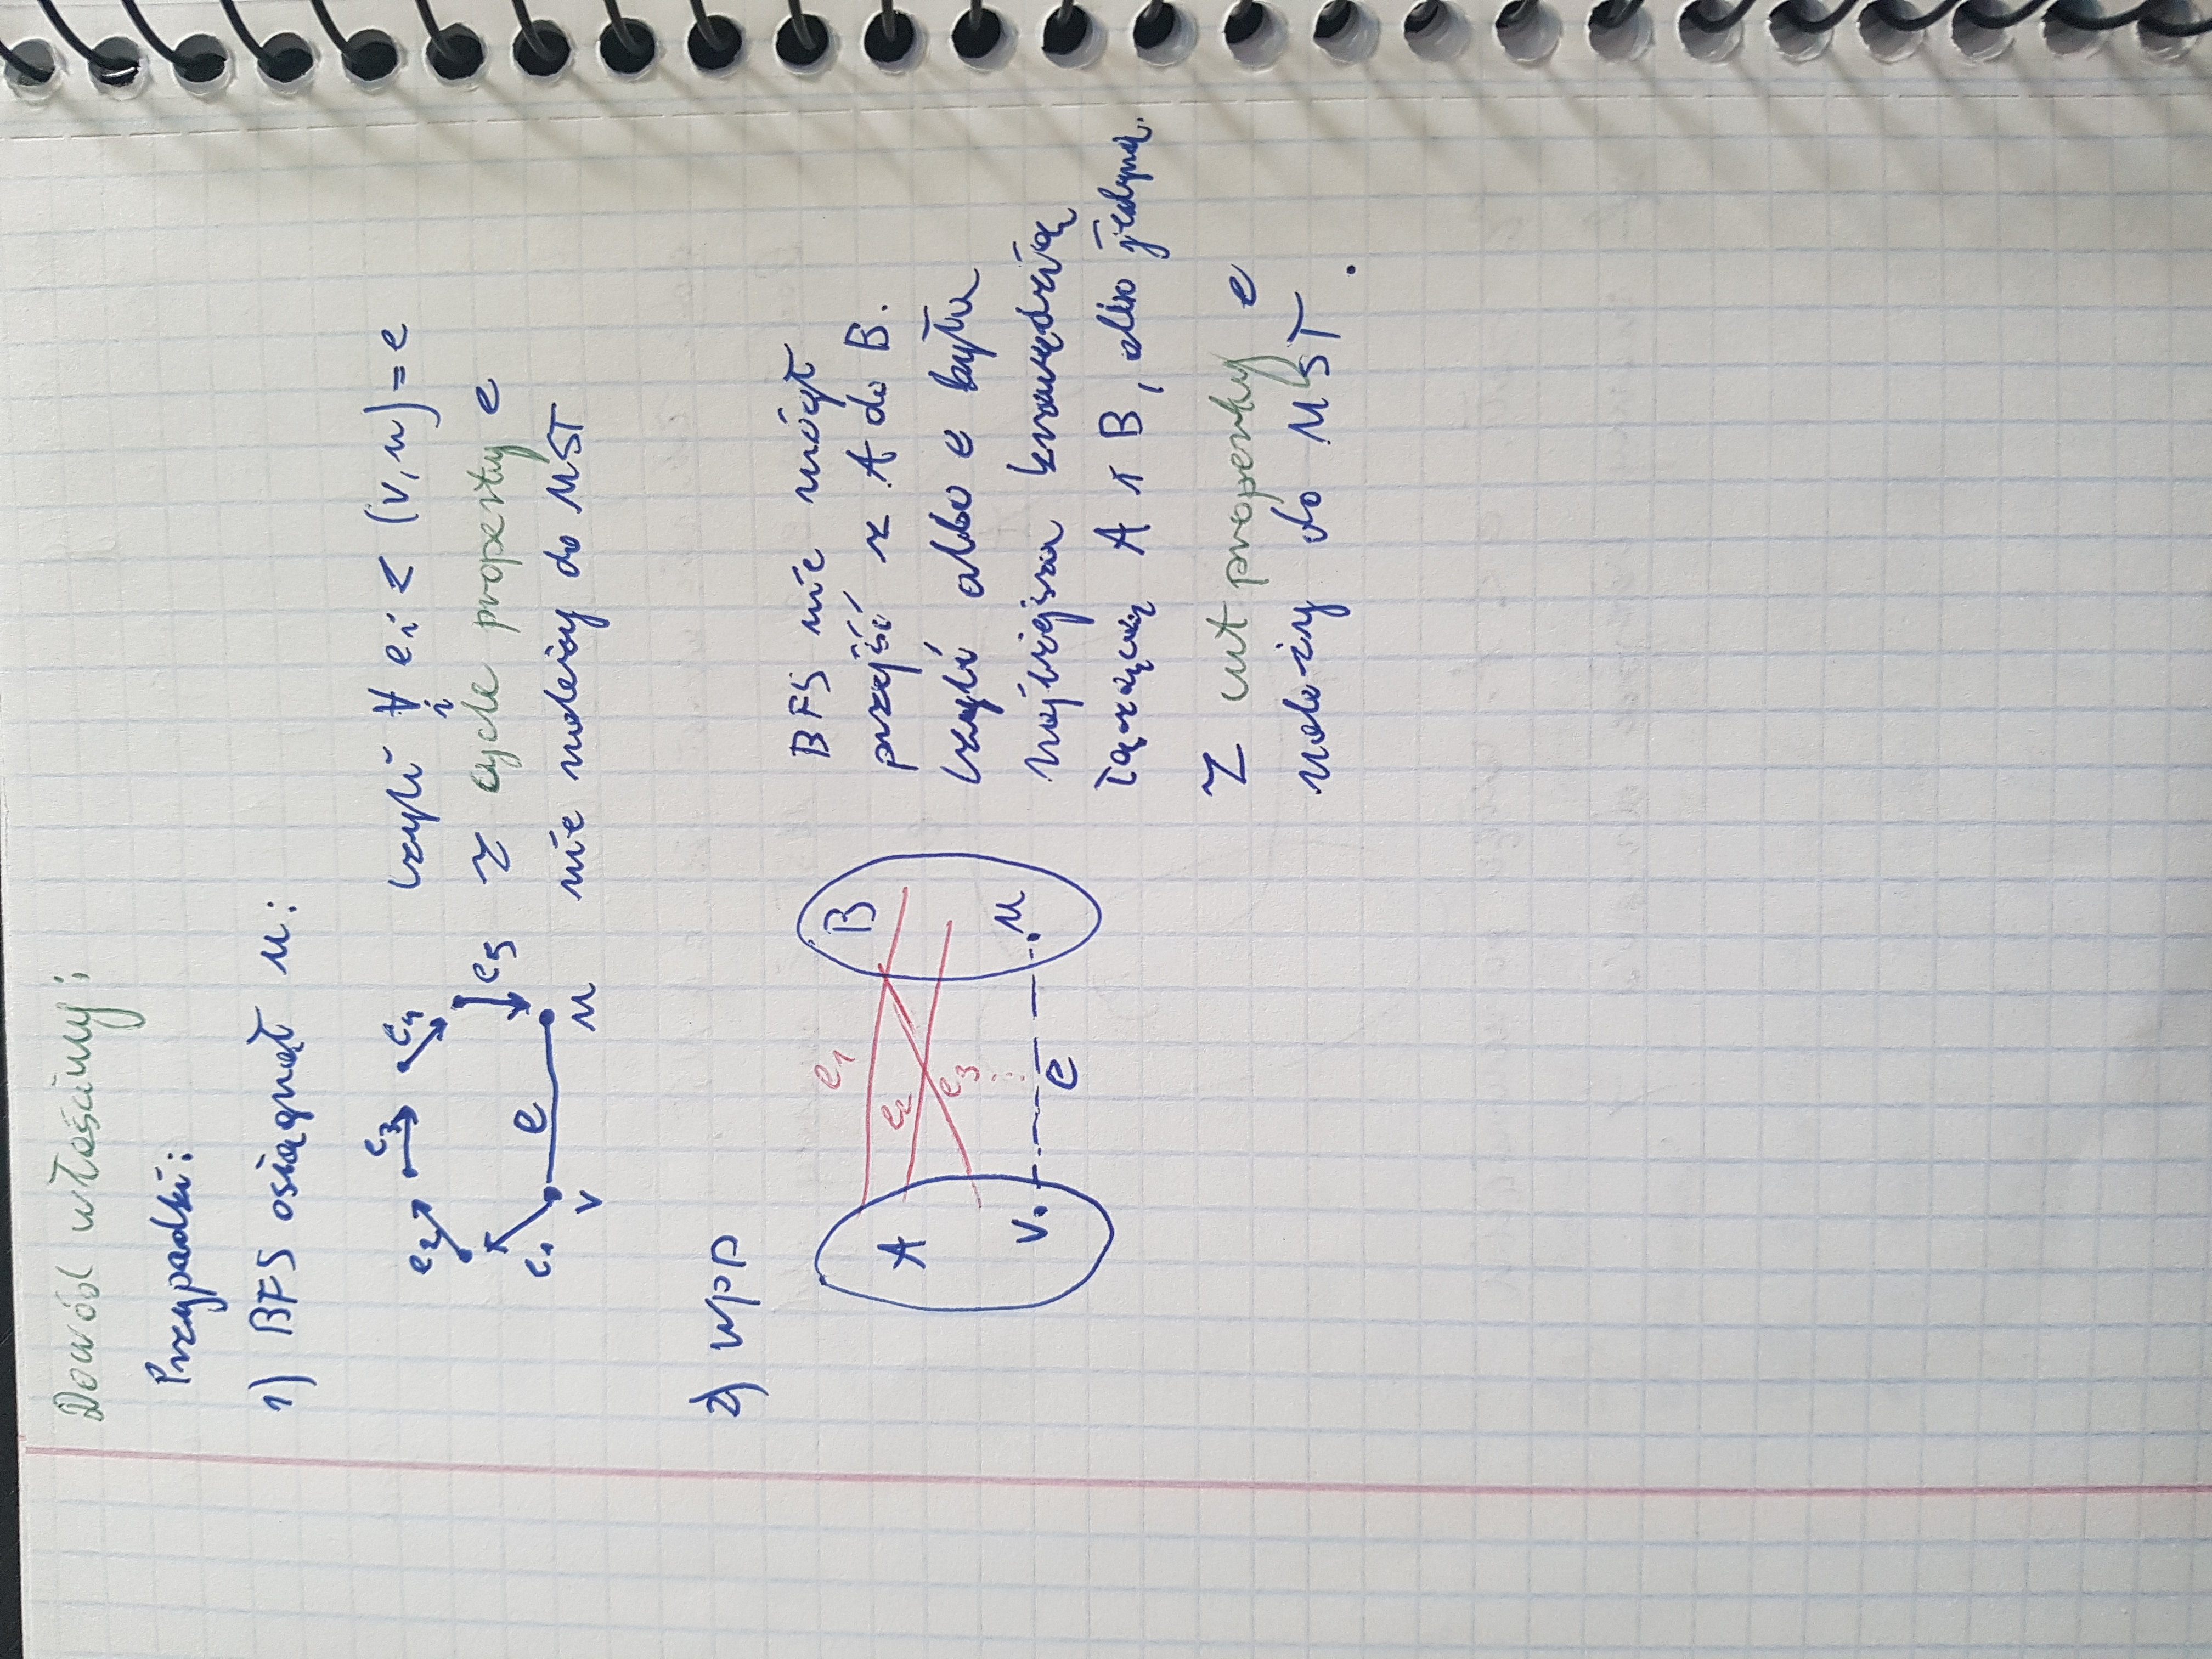 Dowód właściwy:
Przypadki:
1) BFS osiągnął u:
e1 e2 e3 e4 e5 e v u
czyli ∀i ei < (v, u) = e
z cycle property e
nie należy do MST
2) WPP
A B e1 e2 e3 v u e
BFS nie mógł
przejść z A do B.
czyli albo e była
najlżejsza krawędzią
łączącą A i B, albo jedyną.
Z cut property e
należy do MST.